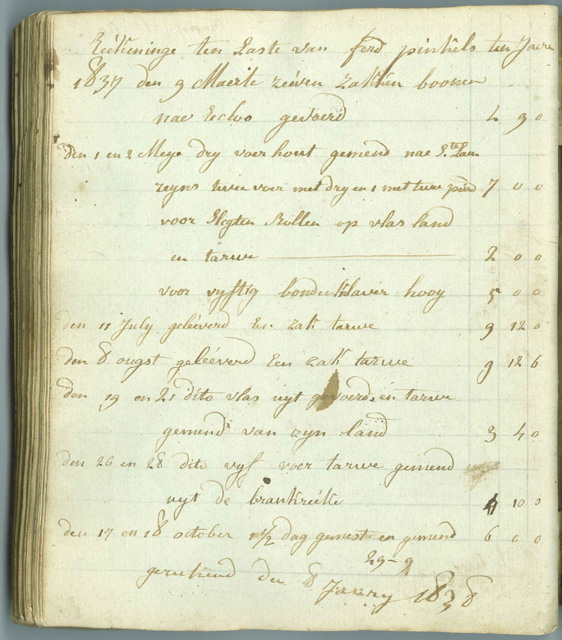 Reekeninge ten Laste van ferd pinkels ten Jaere
1837 den 9 Maerte zeeven zakken boonen
nae Eecloo gevoerd 4 9 0
Den 1 en 2 Meye dry voer hout gemend nae St Lau
reyns twee voer met dry en 1 met twee 7 0 0
voor Slegten Rollen op vlas land
en tarwe 2 0 0
voor vyftig bonders klaver hooy 5 0 0
den 11 July geleeverd Een zak tarwe 9 12 0
den 8 ougst geleeverd Een zak tarwe 9 12 6
den 19 en 21 dito vlas uyt gevoerd en tarwe
gemend van zyn land 3 4 0
den 26 en 28 dito vyf voer tarwe gemend
uyt de 4 10 0
den 17 en 18 october 1 1/2 dag gemest en gemend 6 0 0
29 - 9
gerekend den 8 Janny 1838